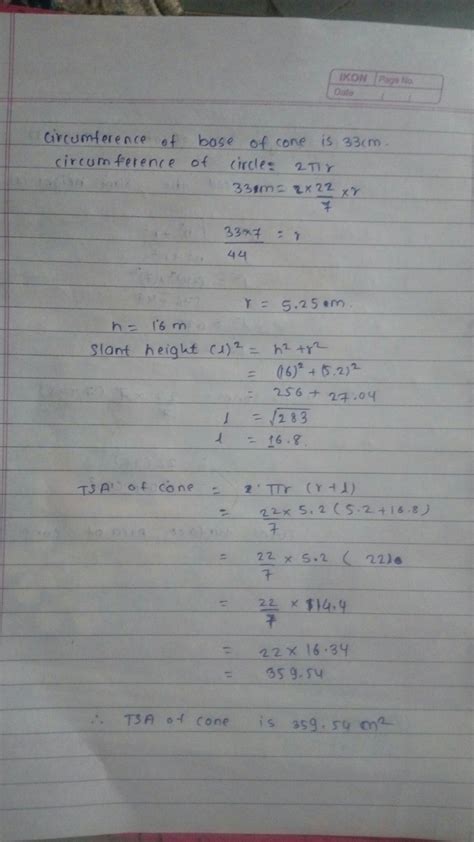 IKON Page No.
Date / /
Circumference of base of cone is 33cm.
circumference of circle = 2πr
33cm = 2 × 22/7 × r
33×7/44 = r
r = 5.25 cm.
h = 16 m
Slant height (l)² = h² + r²
= (16)² + (5.2)²
= 256 + 27.04
l = √283
l = 16.8.
TSA of cone = πr (r + l)
= 22/7 × 5.2 (5.2 + 16.8)
= 22/7 × 5.2 ( 22)
= 22/7 × 114.4
= 22 × 16.34
= 359.54
∴ TSA of cone is 359.54 m²